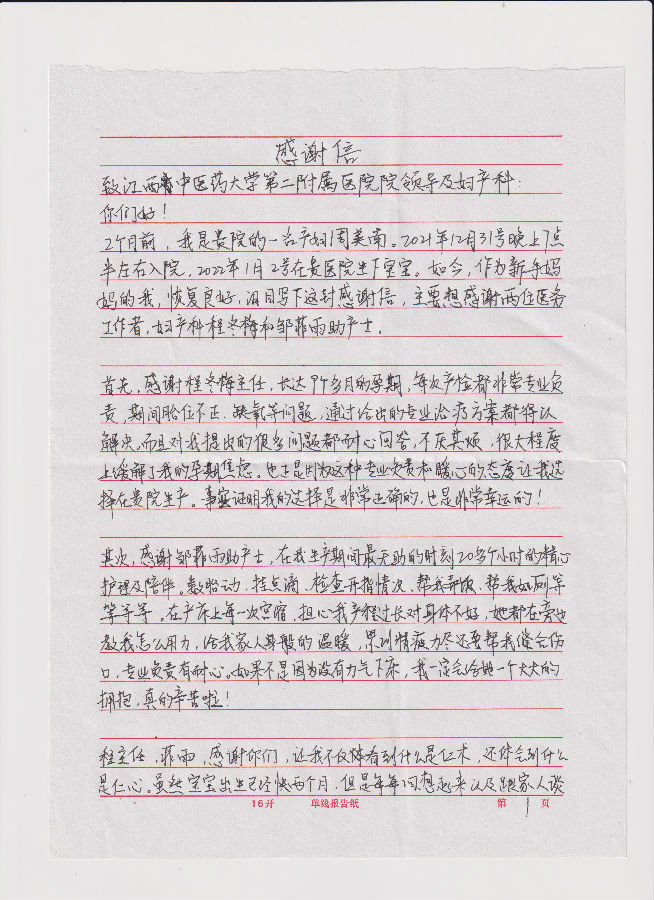 感谢信
致江西省中医药大学第二附属医院院领导及妇产科：
你们好！
2个月前，我是贵院的一名产妇周美南。2021年12月31号晚上7点
半左右入院，2022年1月2号在贵医院生下宝宝。如今，作为新手妈
妈的我，恢复良好，泪目写下这封感谢信，主要想感谢两位医务
工作者，妇产科程冬梅和邹菲雨助产士。
首先，感谢程冬梅主任，长达9个多月的孕期，每次产检都非常专业负
责，期间胎位不正、缺氧等问题，通过给出的专业治疗方案都得以
解决。而且对我提出的很多问题都耐心回答，不厌其烦，很大程度
上缓解了我的孕期焦虑。也正是因为这种专业负责和暖心的态度让我选
择在贵院生产。事实证明我的选择是非常正确的，也是非常幸运的！
其次，感谢邹菲雨助产士，在我生产期间最无助的时刻20多个小时的精心
护理及陪伴。数胎动、挂点滴、检查开指情况、帮我、帮我如厕等
等等等。在产床上每一次宫缩，担心我产程过长对身体不好，她都在旁边
教我怎么用力，给我家人般的温暖，累到精疲力尽还要帮我缝合伤
口，专业负责有耐心。如果不是因为没有力气下床，我一定会给她一个大大的
拥抱，真的辛苦啦！
程主任、菲雨，感谢你们，让我不仅体看到什么是仁术，还体会到什么
是仁心。虽然宝宝出生已经快两个月，但是每每回想起来以及跟家人谈
16开 单线报告纸 第 1 页